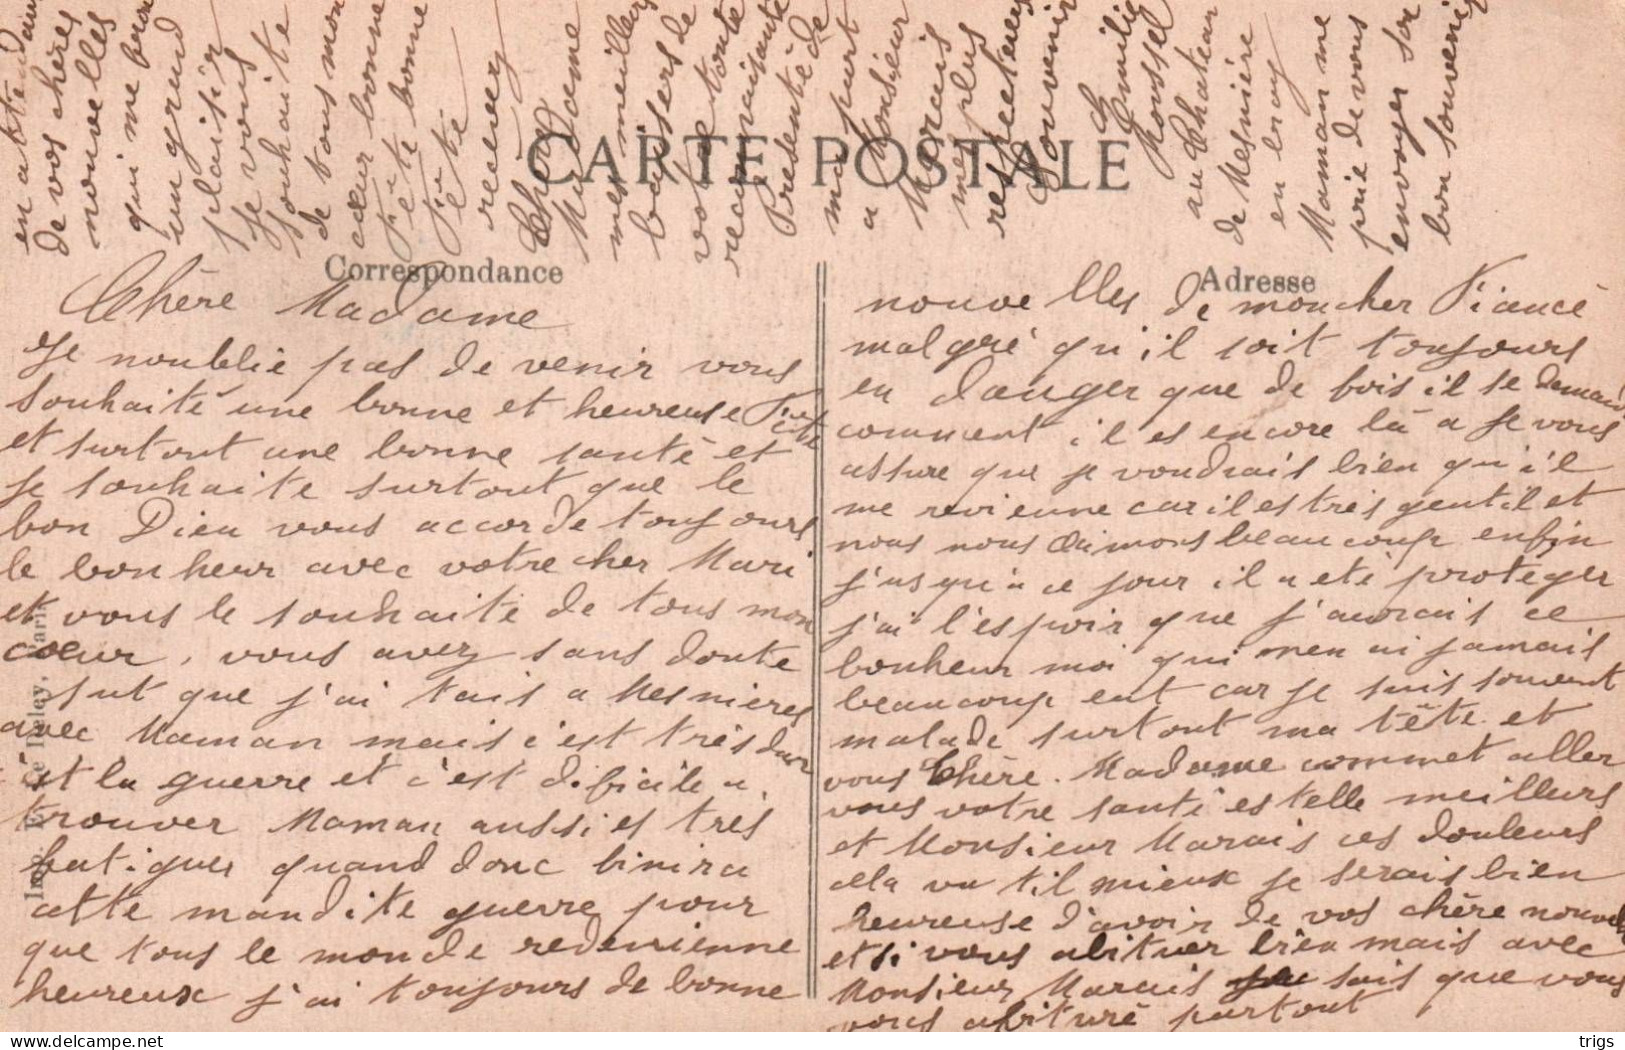 CARTE POSTALE
Correspondance
Adresse
Chère Madame
Je noublie pas de venir vous
souhaité une bonne et heureuse Fête
et surtout une bonne santé et
je souhaite surtout que le
bon Dieu vous accorde toujours
le bonheur avec votre cher Mari
et vous le souhaite de tous mon
cœur, vous avez sans doute
sut que j'ai tais a Mesnieres
avec Maman mais c'est très dur
c'st la guerre et c'est dificile a
trouver Maman aussi es très
fatiguer quand donc finira
cette maudite guerre pour
que tous le monde redevienne
heureux j'ai toujours de bonne
nouvelles de moncher Fiancé
malgré qu'il soit toujours
en danger que de fois il se demande
comment il es encore là a je vous
assure que je voudrais bien qu'il
me revienne car il es très gentil et
nous nous aimons beaucoup enfin
j'usqu'a ce jour il a été proteger
j'ai l'espoir que j'aurais ce
bonheur moi qui men ai jamais
beaucoup eut car je suis souvent
malade surtout ma tête et
vous Chère Madame commet aller
vous votre santé estelle meilleurs
et Monsieur Marais ces douleurs
cela va til mieux je serais bien
heureuse d'avoir de vos chère nouvelles
et si vous abituer bien mais avec
Monsieur Marais je sais que vous
vous abituré partout
en attendant
de vos chères
nouvelles
qui me
un grand
plaisir
Je vous
souhaite
de tous mon
cœur bonne
Fête bonne
Fête
recevez
Chère
Madame
mes meilleurs
baisers de
votre toute
reconnaisante
Presenté de
ma part
a Monsieur
Marais
mes plus
respectueux
Souvenir
Emilie
Roussel
au Chateau
de Mesnière
en bray
Maman me
prie de vous
envoyer son
bon souvenir
Imp. E. Le Deley, Paris
trigs